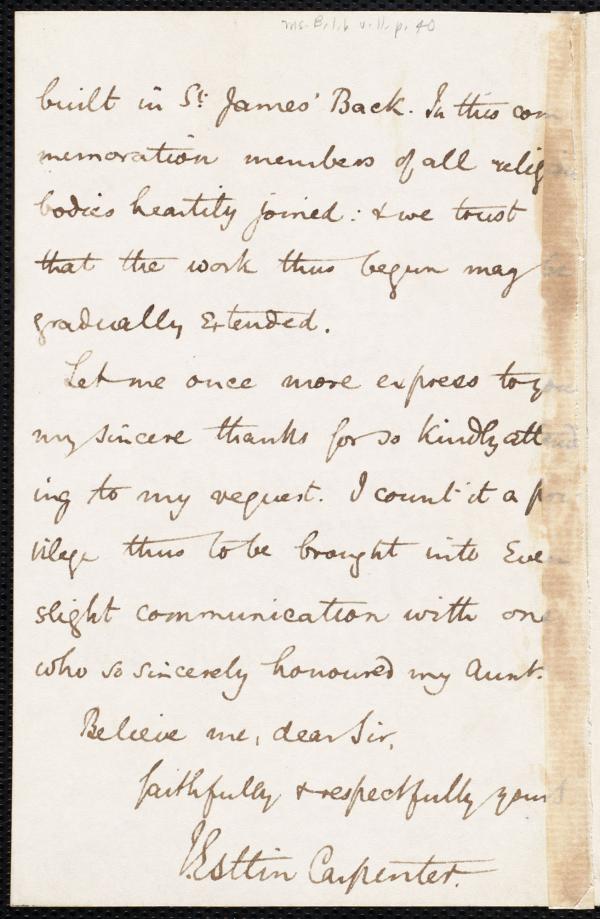 Ms. B.1.6 v.11, p. 40
built in St. James' Back. In this com
memoration members of all relig
bodies heartily joined: & we trust
that the work thus begun may be
gradually extended.
Let me once more express to you
my sincere thanks for so kindly attend
ing to my request. I count it a pri-
vilege thus to be brought into even
slight communication with one
who so sincerely honoured my Aunt.
Believe me, dear Sir,
faithfully & respectfully yours
J. Estlin Carpenter.